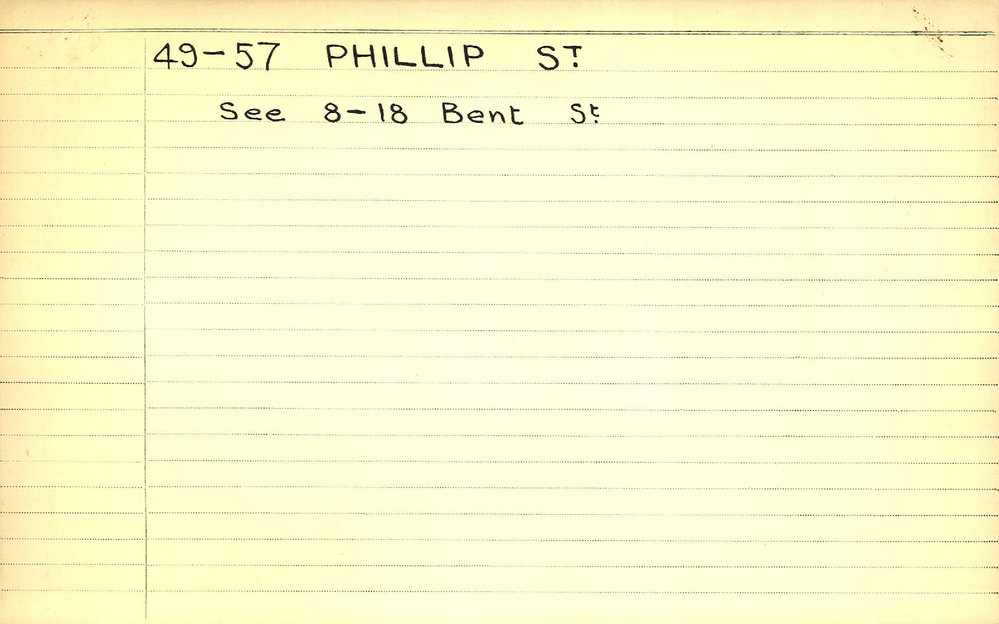 49-57 PHILLIP ST.
See 8-18 Bent St.